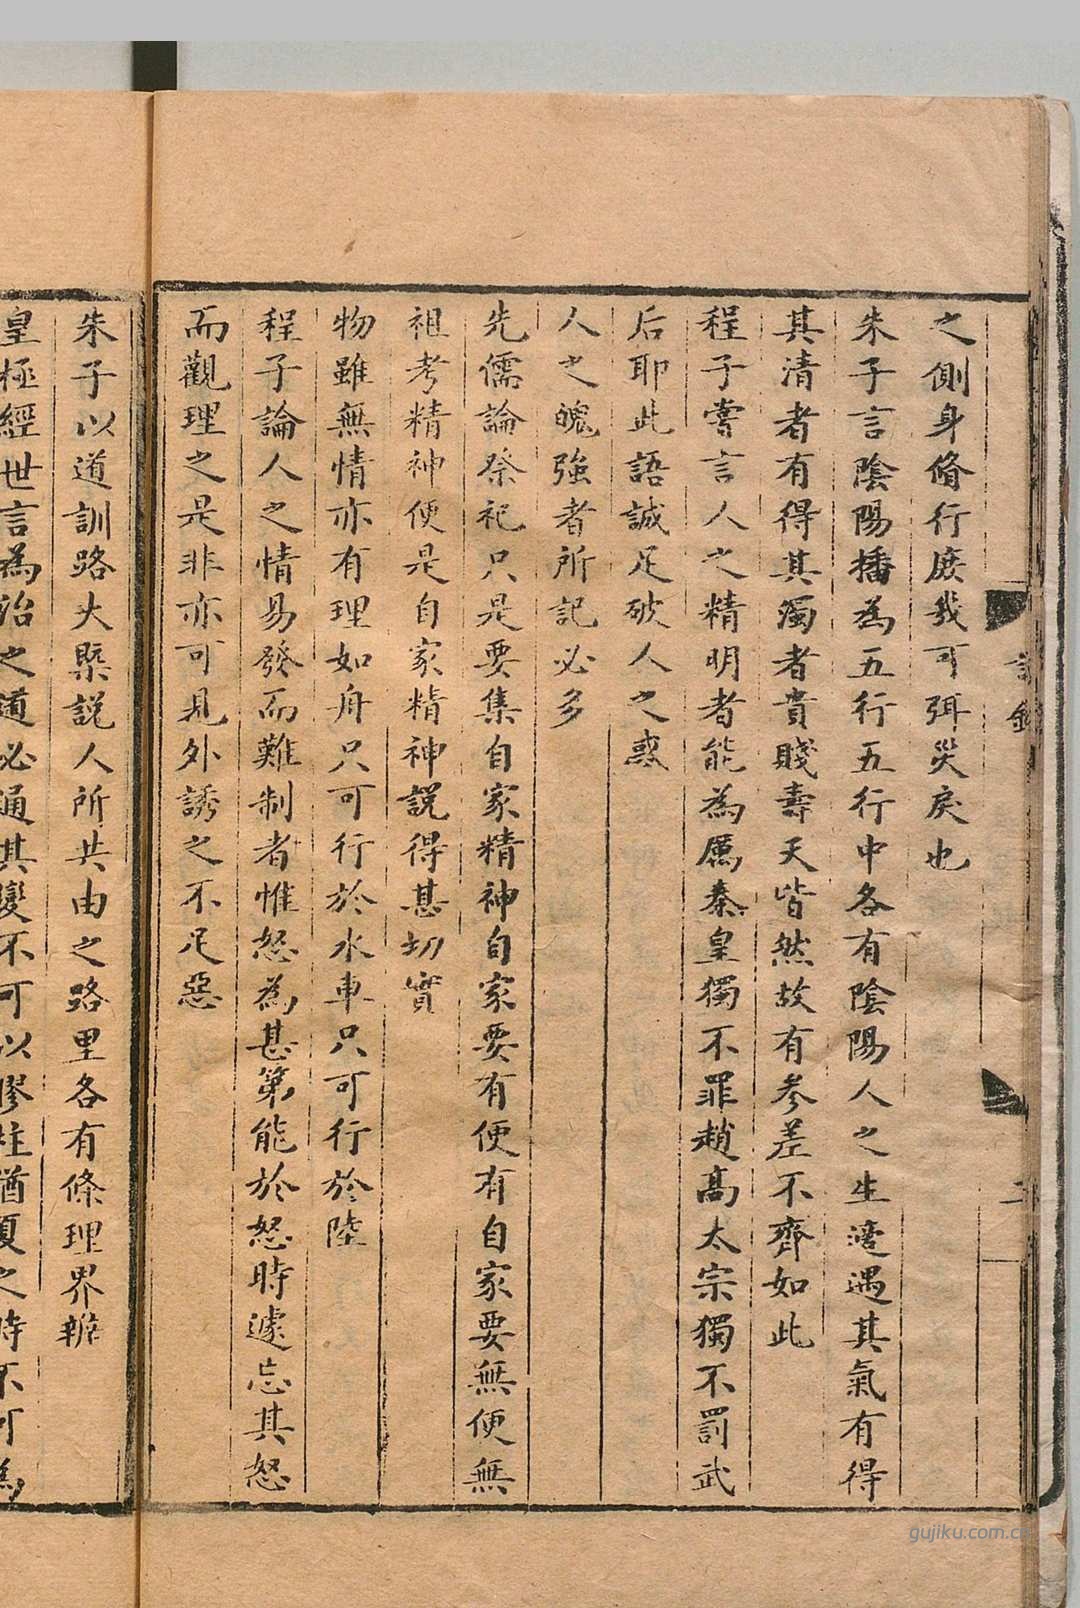 之側身脩行庻我可弭災戾也
朱子言陰陽播為五行五行中各有陰陽人之生適遇其氣有得
其清者有得其濁者貴賤壽夭皆然故有参差不齊如此
程子嘗言人之精明者能為厲秦皇獨不罪趙高太宗獨不罰武
后耶此語誠足破人之惑
人之魄強者所記必多
先儒論祭祀只是要集自家精神自家要有便有自家要無便無
祖考精神便是自家精神説得甚切實
物雖無情亦有理如舟只可行於水車只可行於陸
程子論人之情易發而難制者惟怒為甚第能於怒時遽忘其怒
而觀理之是非亦可見外誘之不足惡
朱子以道訓路大槩説人所共由之路里各有條理界辦
皇極經世言為治之道必通其變不可以膠柱猶夏之時不可為
gujiku.com.c